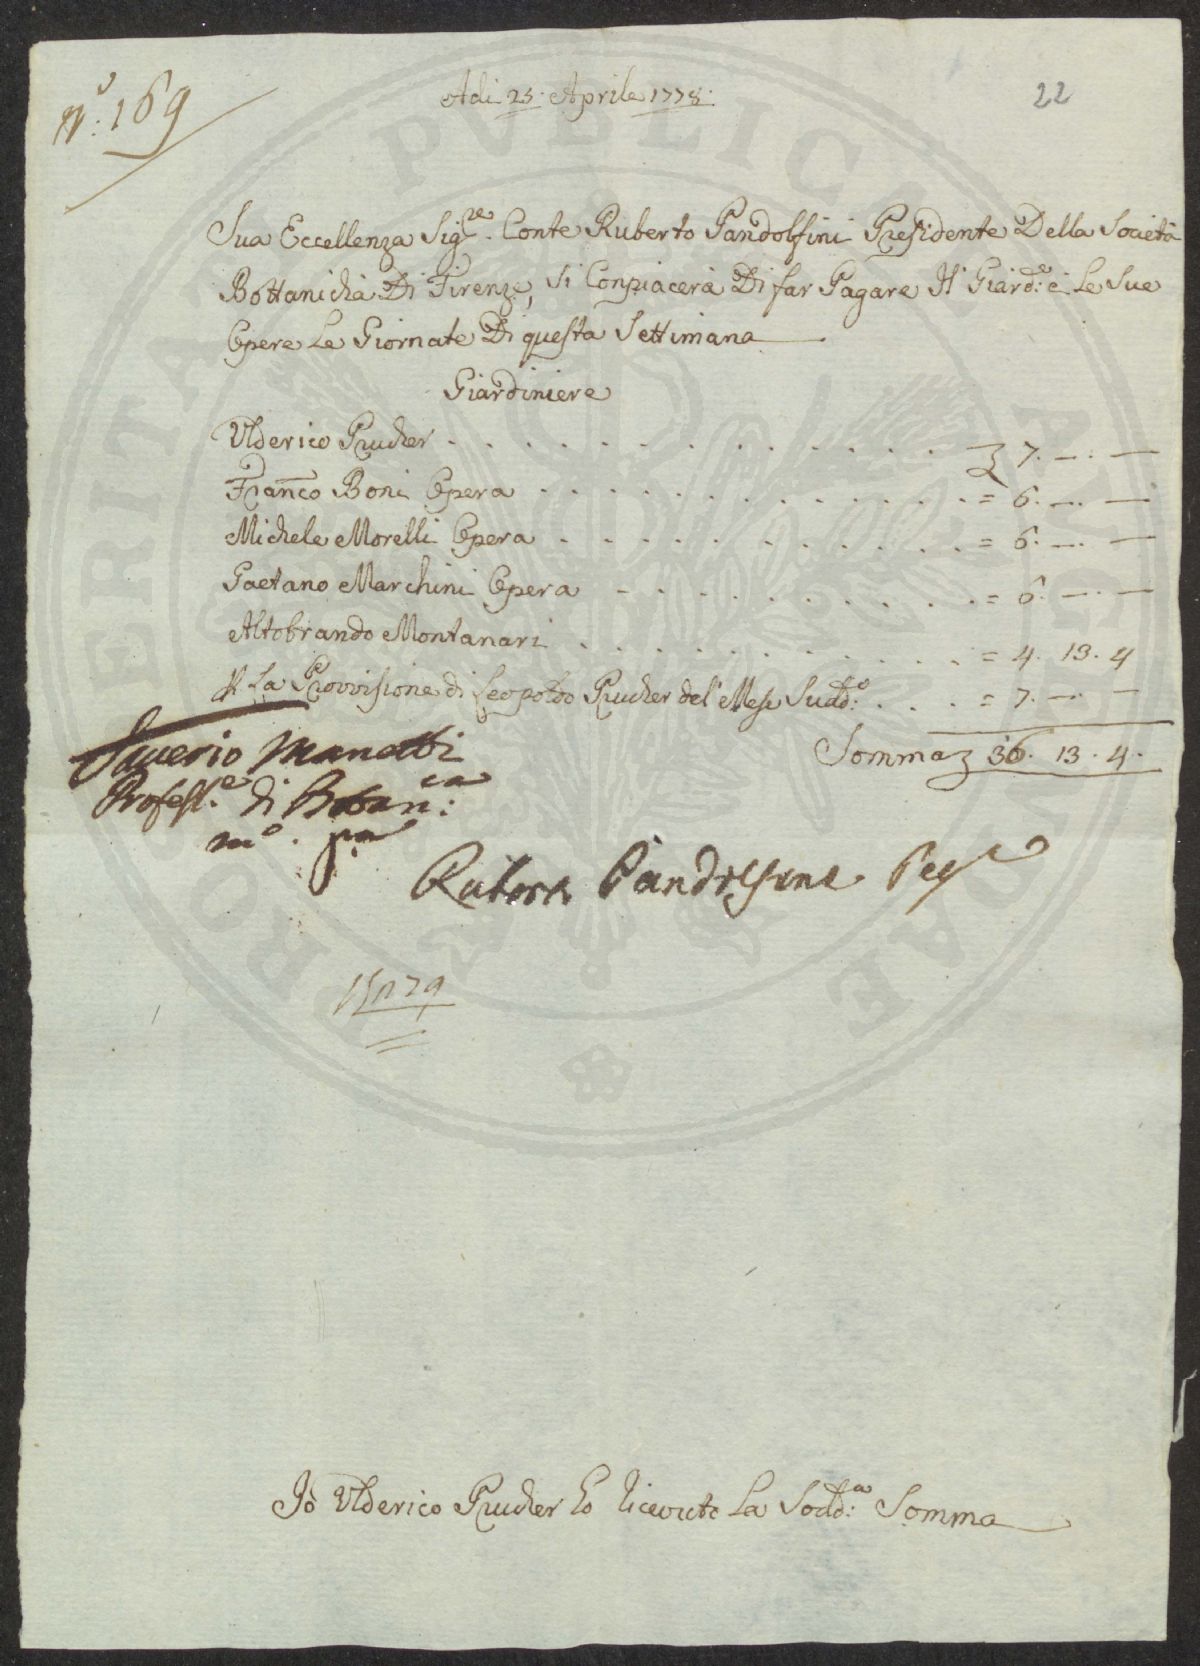 N.° 169
Adi 25. Aprile 1778.
22
Sua Eccellenza Sig.re Conte Ruberto Pandolfini Presidente Della Società
Bottanicha Di Firenze, Si Conpiacerà Di far Pagare Il Giard.e è Le Sue
Opere Le Giornate Di questa Settimana
Giardiniere
Ulderico Prucher . . . . . . . . . . . . 7. — . —
Franco Boni Opera . . . . . . . . . . . = 6. — . —
Michele Morelli Opera . . . . . . . . . . = 6. — . —
Gaetano Marchini Opera . . . . . . . . . = 6. — . —
Altobrando Montanari . . . . . . . . . . = 4. 13. 4
La Provvisione di Leopoldo Prucher del Mese Sudd.o . . . = 7. — . —
Somma 36. 13. 4.
Saverio Manetti
Profess.e di Botan.ca
m.o p.a
Pandolfini
Iò Ulderico Prucher ho riceuuto La Sodd.a Somma